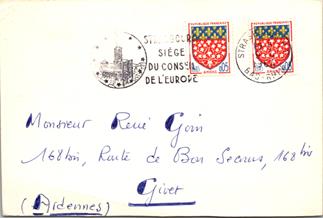 STRASBOURG
SIÈGE
DU CONSEIL
DE L'EUROPE
REPUBLIQUE FRANÇAISE
0,05
AMIENS
REPUBLIQUE FRANÇAISE
Monsieur René Goin
168 bis, Route de Bon Secours, 168 bis
Givet
(Ardennes)